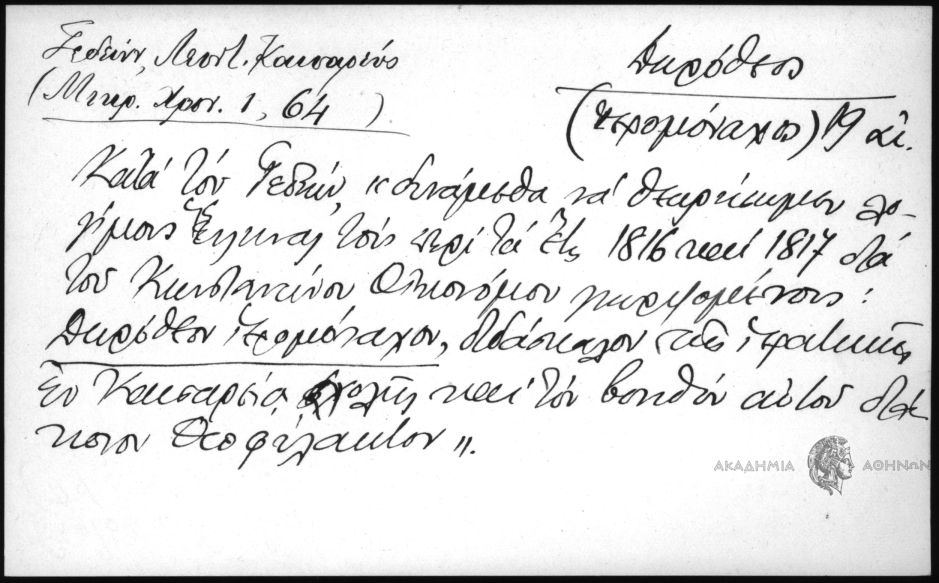 Γεδεών, Λεόντ. Καισαρείας
(Μικρ. Χρον. 1, 64)
Δωρόθεος
(ἱερομόναχος) 19 αἰ.
Κατά τόν Γεδεών, "δυνάμεθα νά θεωρήσωμεν ἐλο-
γίμους Ἕλληνας τούς περί τά ἔτη 1816 καί 1817 διά
τοῦ Κωνσταντίνου Οἰκονόμου γνωριζομένους:
Δωρόθεον ἱερομόναχον, διδάσκαλον τῆς ἱερατικῆς
ἐν Καισαρείᾳ σχολῆς καί τόν βοηθόν αὐτοῦ διά-
κονον Θεοφύλακτον".
ΑΚΑΔΗΜΙΑ ΑΘΗΝΩΝ